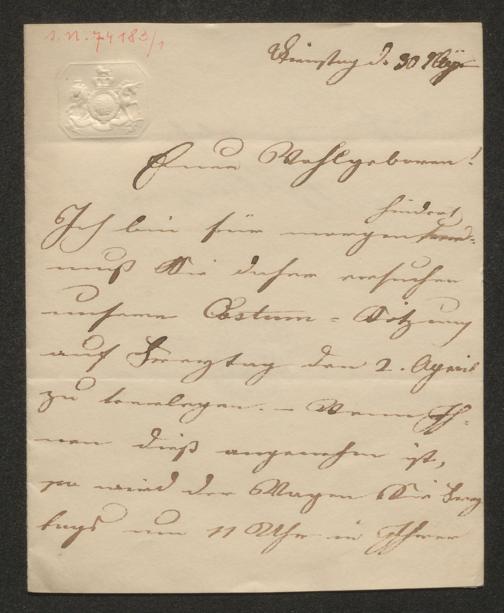 I. N. 74183/1
Dienstag d. 30 März
Euer Wohlgeboren!
hindert,
Ich bin für morgen
muß Sie daher ersuchen
unsere Costum=Sitzung
auf Freytag den 2. April
zu verlegen. – Wenn Ih=
nen dieß angenehm ist,
so wird der Wagen Sie Frey
tags um 11 Uhr in Ihrer